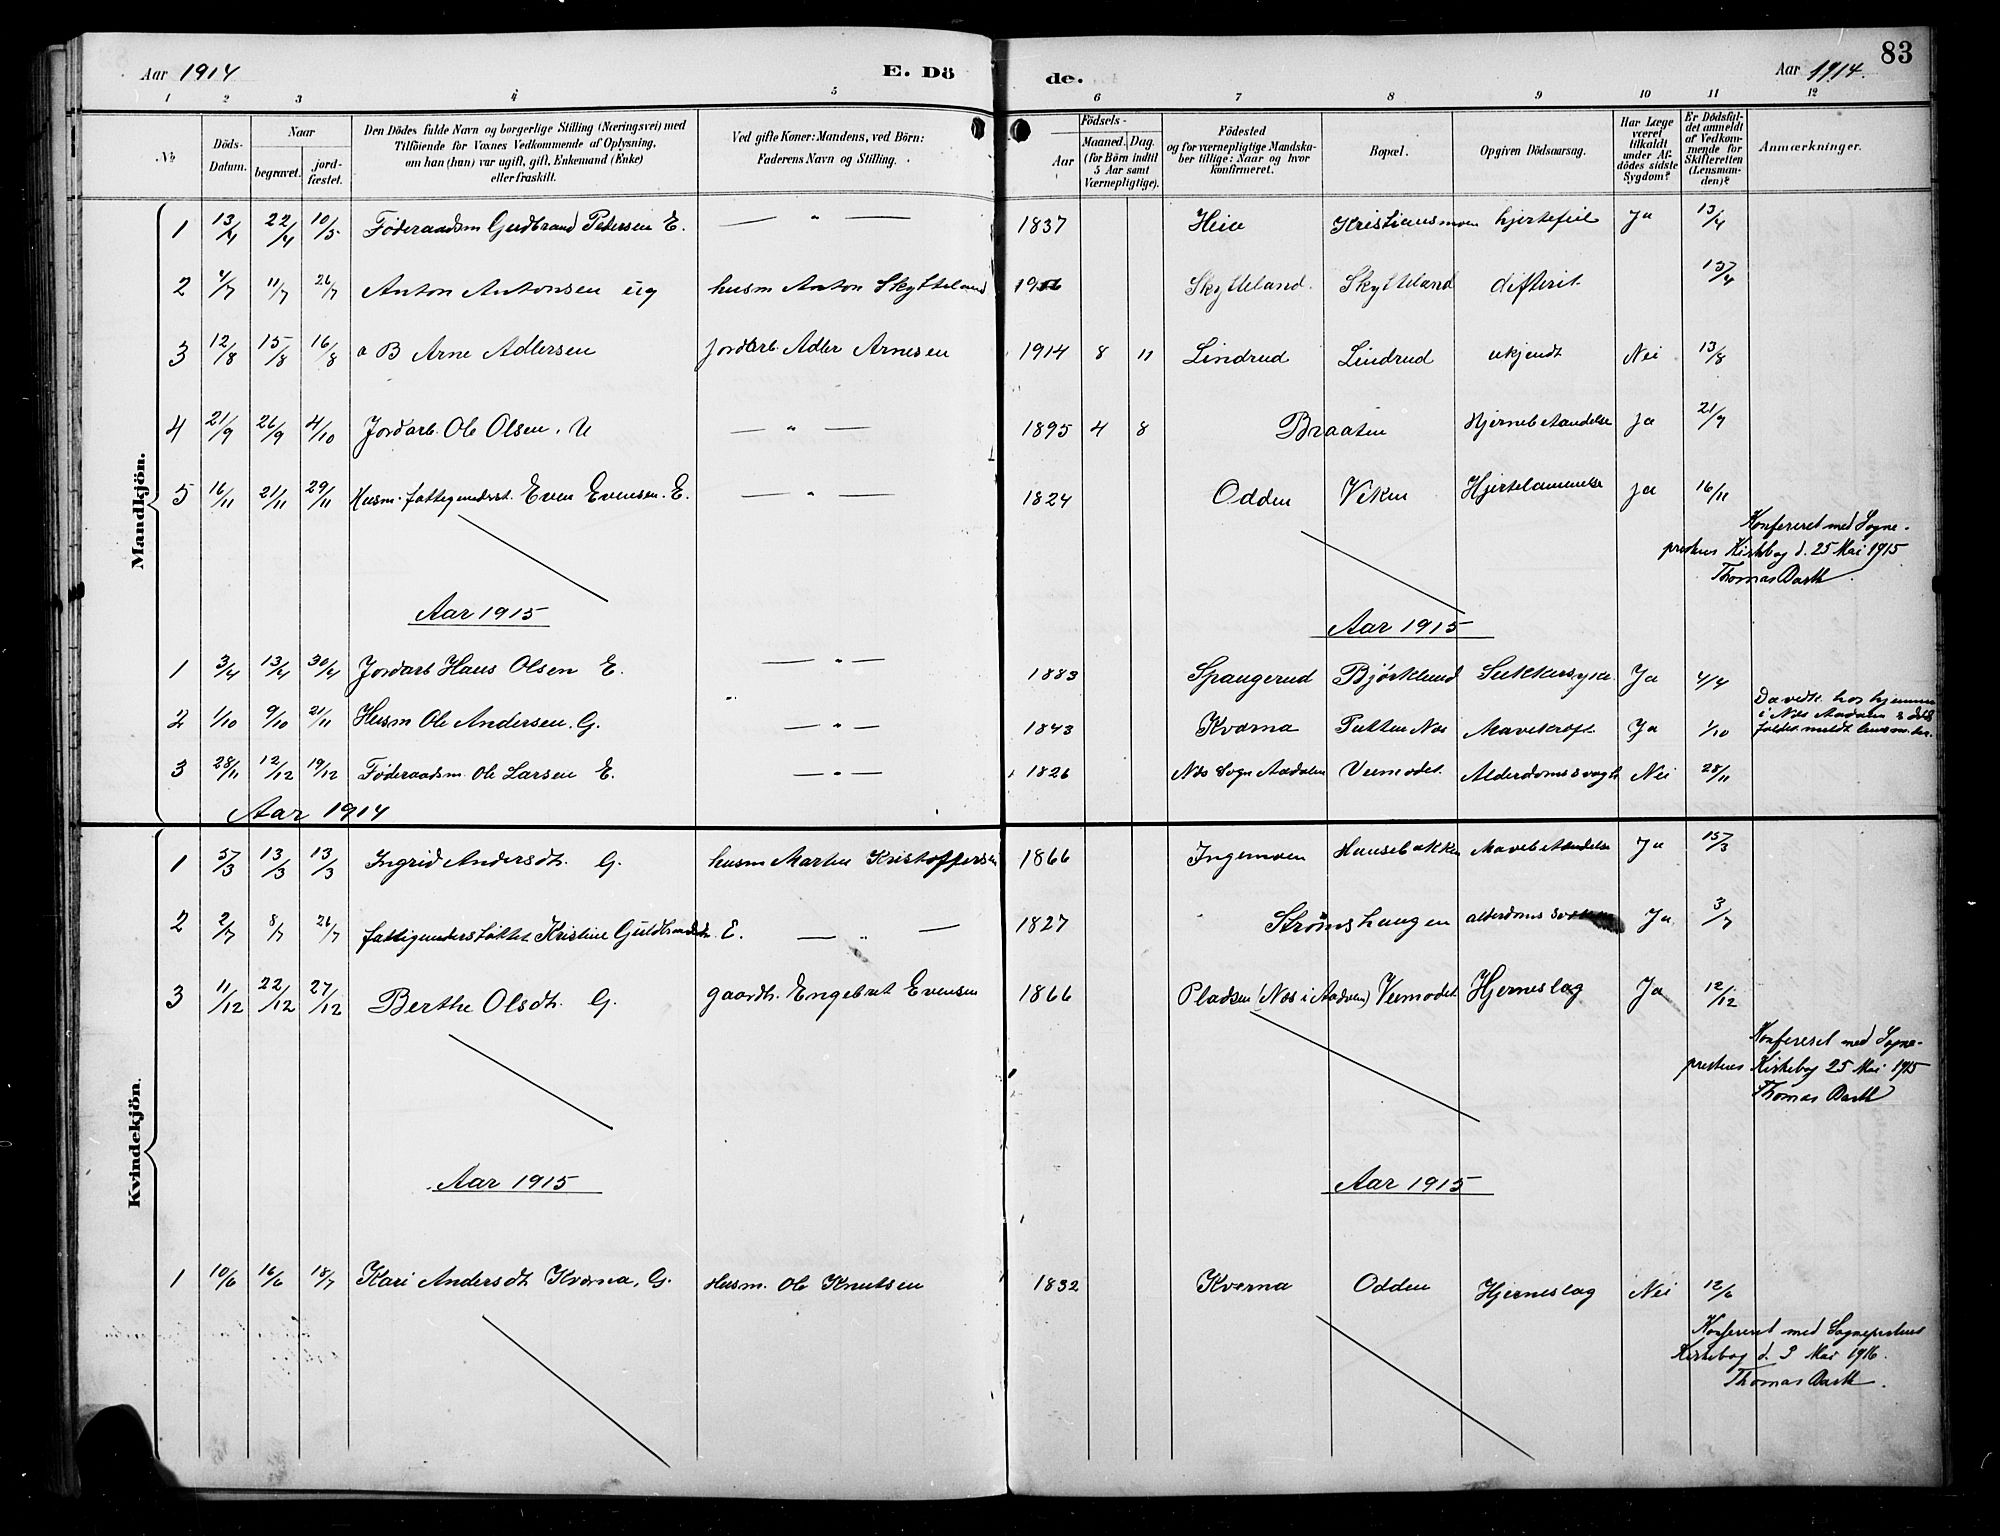 Aar 1914 E. Dö de. Aar 1914. 83
1 2 3 4 5 6 7 8 9 10 11 12
No. Döds-Datum. Naar begravet. jordfæstet. Den Dödes fulde Navn og borgerlige Stilling (Næringsvei) med Tilföiende for Voxnes Vedkommende af Oplysning, om han (hun) var ugift, gift, Enkemand (Enke) eller fraskilt. Ved gifte Koner: Mandens, ved Börn: Faderens Navn og Stilling. Födsels- Aar Maaned. Dag. (for Börn indtil 5 Aar samt Værnepligtige). Födested og for værnepligtige Mandskaber tillige: Naar og hvor konfirmeret. Bopæl. Opgiven Dödsaarsag. Har Læge været tilkaldt under Afdödes sidste Sygdom? Er Dödsfaldet anmeldt af Vedkommende for Skifteretten (Lensmanden)? Anmærkninger.
Mandkjön.
1 13/4 22/4 10/5 Føderaadsm Gudbrand Petersen E. — " — 1837 Heie Kristiansmoen hjertefeil Ja 13/4
2 4/7 11/7 26/7 Anton Antonsen ug husm Anton Skytteland Skytteland. Skytteland difterit 13/4
3 12/8 15/8 16/8 a B Arne Adlersen Jordarb. Adler Arnesen 1914 8 11 Lindrud Lindrud ukjendt Nei 13/8
4 21/9 26/9 4/10 Jordarb. Ole Olsen. U — " — 1895 4 8 Braaten Hjernebetændelse Ja 21/9
5 16/11 21/11 29/11 Husm. fattigunderst. Even Evensen. E. — " — 1824 Odden Viken Hjertelammelse Ja 16/11
Konfereret med Sogne-
prestens Kirkebog d. 25 Mai 1915
Thomas Barth
Aar 1915 Aar 1915
1 3/4 13/4 30/4 Jordarb Hans Olsen E. — " — 1883 Spangerud Bjørklund Sukkersyke Ja 4/4
2 1/10 9/10 21/11 Husm Ole Andersen. G. — " — 1843 Kværna Tutten Næs Mavekræft Ja 1/10 hos hjemme i Næs Aadalen
3 28/11 12/12 19/12 Føderaadsm. Ole Larsen E. — " — 1826 Næs Sogn Aadalen Veimodet. Alderdomssvagh. Nei 28/11
Aar 1914
Kvindekjön.
1 5/3 13/3 13/3 Ingrid Andersdt. G. husm Martin Kristoffersen 1866 Ingemoen Hansebakken Mavebetændelse Ja 15/3
2 2/7 8/7 26/7 fattigunderstøttet Kristine Guldbrandsdt. E. — " — 1827 Strømshaugen Ja. 3/7
3 11/12 22/12 27/12 Berthe Olsdt. G. gaardb. Engebret Evensen 1866 Pladsen (Næs i Aadalen) Veimodet Hjerneslag Ja 12/12
Konfereret med Sogne-
prestens Kirkebog 25 Mai 1915
Thomas Barth
Aar 1915 Aar 1915
1 10/6 16/6 18/7 Kari Andersdt Kværna, G. Husm. Ole Knutsen 1832 Kverna Odden Hjerneslag Nei 12/6
Konfereret med Sogneprestens
Kirkebog d. 3 Mai 1916.
Thomas Barth.